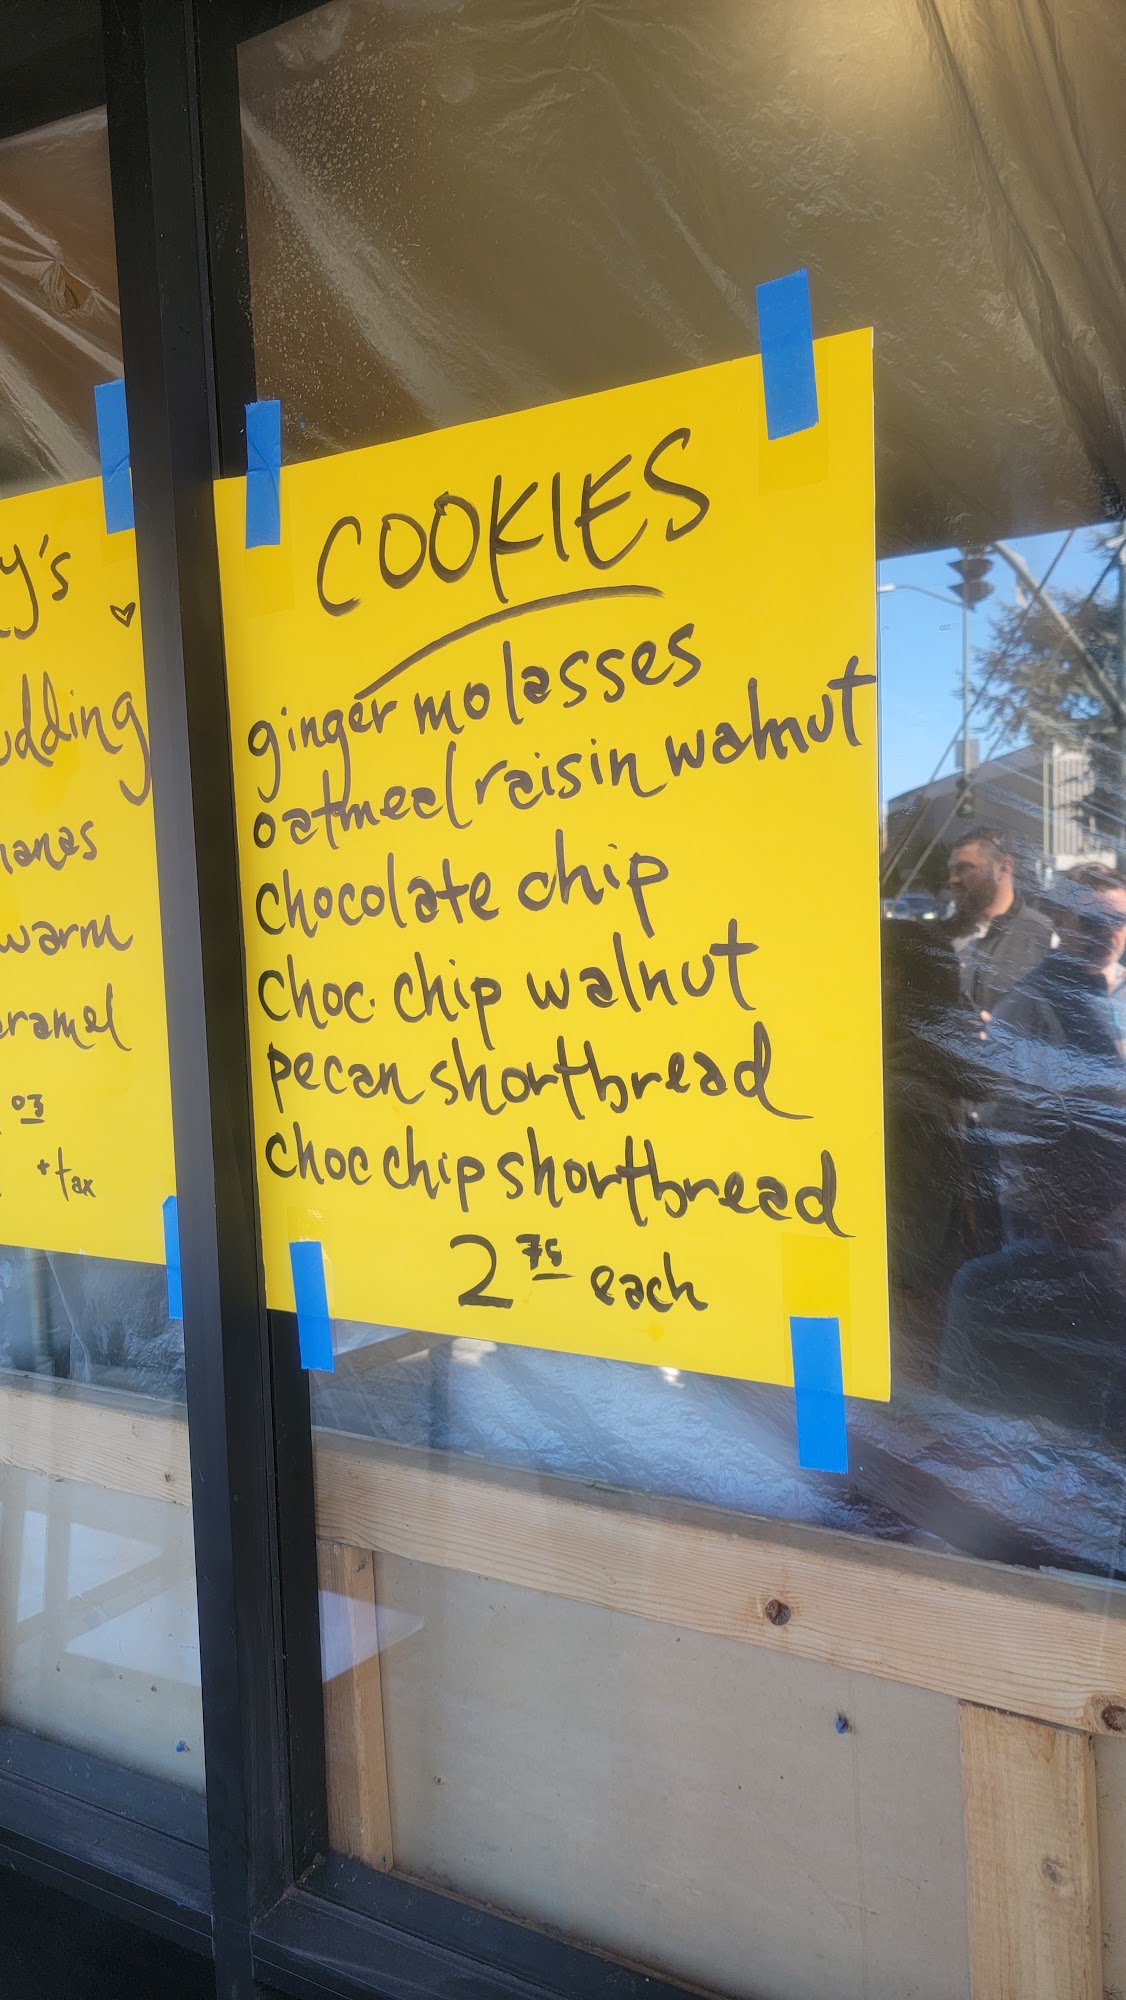 y's
udding
nanas
warm
aramel
03
+tax
COOKIES
ginger molasses
oatmeal raisin walnut
chocolate chip
choc. chip walnut
pecan shortbread
choc chip shortbread
2 75 each